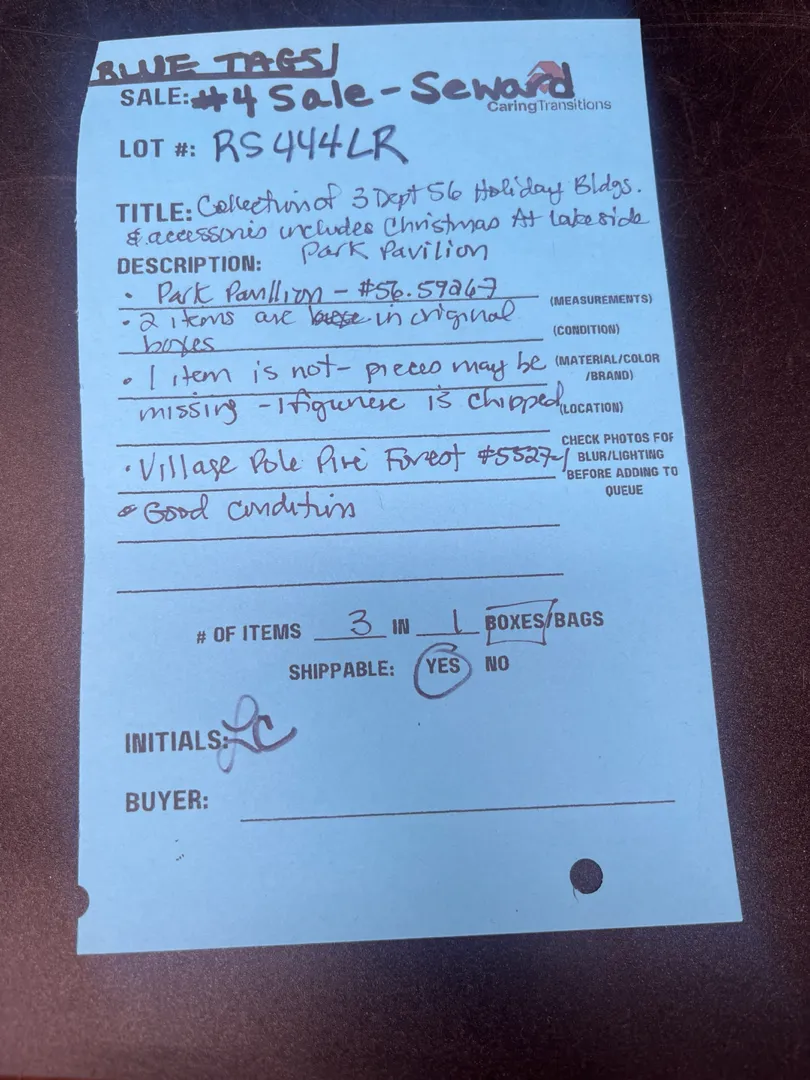 BLUE TAGS/
SALE: #4 Sale - Seward
CaringTransitions
LOT #: RS444LR
TITLE: Collection of 3 Dept 56 Holiday Bldgs.
& accessories includes Christmas At Lakeside
Park Pavilion
DESCRIPTION:
• Park Pavillion - #56.59267
(MEASUREMENTS)
• 2 items are in original
(CONDITION)
boxes
• 1 item is not - pieces may be
(MATERIAL/COLOR
/BRAND)
missing - 1 figurine is chipped
(LOCATION)
CHECK PHOTOS FOR
• Village Pole Pine Forest #5527-1
BLUR/LIGHTING
BEFORE ADDING TO
QUEUE
• Good condition
# OF ITEMS 3 IN 1 BOXES/BAGS
SHIPPABLE: YES NO
INITIALS: LC
BUYER: